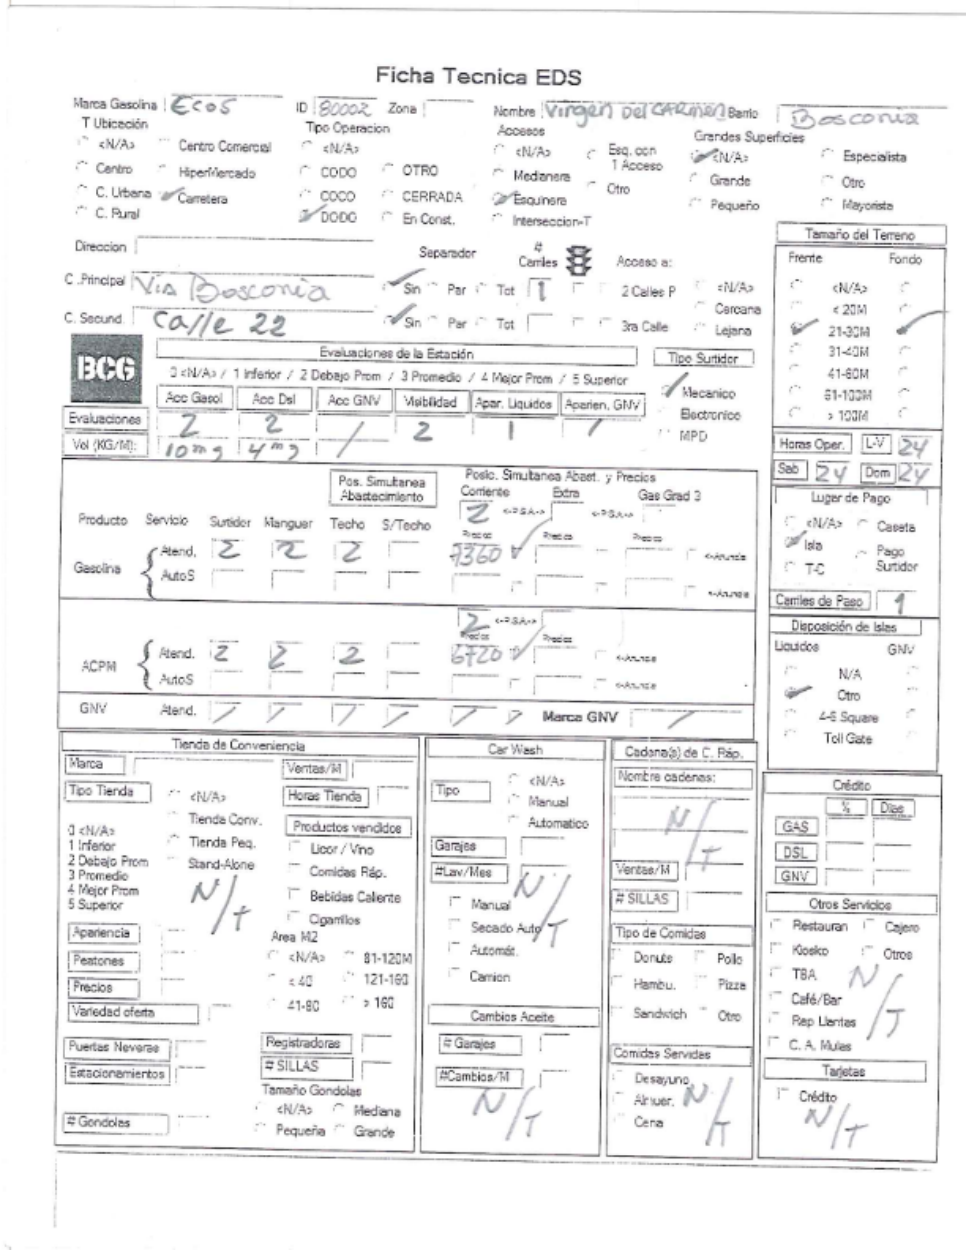 Ficha Tecnica EDS
Marca Gasolina Ecos ID 80002 Zona Nombre Virgen Del CARMEN Barrio Bosconia
T Ubicación Tipo Operacion Accesos Grandes Superficies
<N/A> Centro Comercial <N/A> <N/A> Esq. con 1 Acceso <N/A> Especialista
Centro HiperMercado CODO OTRO Medianera Otro Grande Otro
C. Urbana Carretera COCO CERRADA Esquinera Pequeño Mayorista
C. Rural DODO En Const. Interseccion-T
Direccion Separador # Carriles Acceso a:
C .Principal Via Bosconia Sin Par Tot 1 2 Calles P <N/A>
Cercana
C. Secund. Calle 22 Sin Par Tot 3ra Calle Lejana
Tamaño del Terreno
Frente Fondo
<N/A>
< 20M
21-30M
31-40M
41-60M
61-100M
> 100M
BCG
Evaluaciones de la Estación
0 <N/A> / 1 Inferior / 2 Debajo Prom / 3 Promedio / 4 Mejor Prom / 5 Superior
Acc Gasol Acc Dsl Acc GNV Visibilidad Apar. Liquidos Aparien. GNV
Evaluaciones 2 2 / 2 1 /
Vol (KG/M): 10 mg 4 mg /
Tipo Surtidor
Mecanico
Electronico
MPD
Horas Oper. L-V 24
Sab 24 Dom 24
Pos. Simultanea Abastecimiento
Posic. Simultanea Abast. y Precios
Corriente Extra Gas Grad 3
2 <-P.S.A.-> <-P.S.A.->
Producto Servicio Surtidor Manguer Techo S/Techo Precios Precios Precios
Gasolina Atend. 2 2 2 7360 <-Anuncia
AutoS <-Anuncia
2 <-P.S.A.->
Precios Precios
ACPM Atend. 2 2 2 6720 <-Anuncia
AutoS <-Anuncia
GNV Atend. / / / / / / Marca GNV /
Lugar de Pago
<N/A> Caseta
Isla Pago Surtidor
T-C
Carriles de Paso 1
Disposición de Islas
Liquidos GNV
N/A
Otro
4-6 Square
Toll Gate
Tienda de Conveniencia
Marca Ventas/M
Tipo Tienda <N/A> Horas Tienda
Tienda Conv. Productos vendidos
0 <N/A>
1 Inferior Tienda Peq. Licor / Vino
2 Debajo Prom Stand-Alone Comidas Ráp.
3 Promedio
4 Mejor Prom N/T Bebidas Caliente
5 Superior Cigarrillos
Apariencia Area M2
Peatones <N/A> 81-120M
Precios < 40 121-160
Variedad oferta 41-80 > 160
Puertas Neveras Registradoras
Estacionamientos # SILLAS
Tamaño Gondolas
<N/A> Mediana
# Gondolas Pequeña Grande
Car Wash
Tipo <N/A>
Manual
Automatico
Garajes
#Lav/Mes N/T
Manual
Secado Auto
Automát.
Camion
Cambios Aceite
# Garajes
#Cambios/M
N/T
Cadena(s) de C. Ráp.
Nombre cadenas:
N/T
Ventas/M
# SILLAS
Tipo de Comidas
Donuts Pollo
Hambu. Pizza
Sandwich Otro
Comidas Servidas
Desayuno
Almuer. N/T
Cena
Crédito
% Dias
GAS
DSL
GNV
Otros Servicios
Restauran Cajero
Kiosko Otros
TBA N/T
Café/Bar
Rep Llantas
C. A. Mulas
Tarjetas
Crédito
N/T